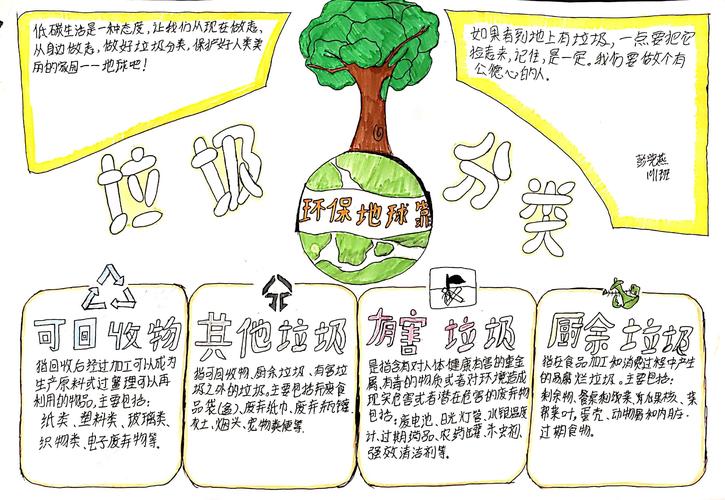 低碳生活是一种态度,让我们从现在做起、
从身边做起,做好垃圾分类,保护好人类美
用的家园——地球吧!
如果看到地上有垃圾,一点要把它
捡起来,记住,是一定。我们要做个有
公德心的人。
垃圾
分类
环保地球靠
可回收物
指回收后经过加工可以成为
生产原料或过整理可以再
利用的物品,主要包括:
纸类、塑料类、玻璃类、
织物类、电子废弃物等.
其他垃圾
指可回收物、厨余垃圾、有害垃
圾之外的垃圾.主要包括弃废食
品袋(盒)、废弃纸巾、废弃
灰土、烟头、宠物粪便等.
有害垃圾
是指含有对人体健康有害的重金
属、有毒的物质或者对环境造成
现实危害或者潜在危害的废弃物
包括:废电池、日光灯管、水银温度
计、过期药品、农药、杀虫剂、
强效清洁剂等。
厨余垃圾
指在食品加工和消费过程中产生
的易腐烂垃圾.主要包括:
剩余物、餐桌剩饭菜、果核、菜
帮菜叶,蛋壳、动物和内脏、
过期食物。